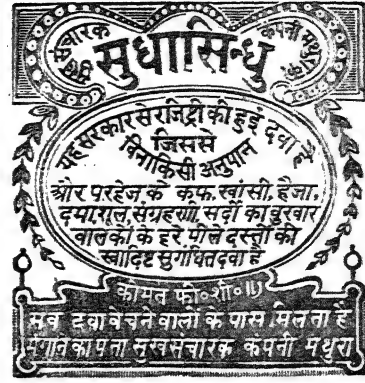 सुख संचारक कंपनी मथुरा
सुधासिन्धु
यह सरकार से रजिट्री की हुई दवा है
जिससे
बिना किसी अनुपान
और परहेज के कफ, खांसी, हैजा,
दमा, शूल, संग्रहणी, सर्दी का बुखार
बालकों के हरे पीले दस्तों की
स्वादिष्ट सुगंधित दवा है
कीमत फी॰ शी॰ ॥)
सब दवा बेचने वालों के पास मिलता है
मंगाने का पता सुखसंचारक कंपनी मथुरा